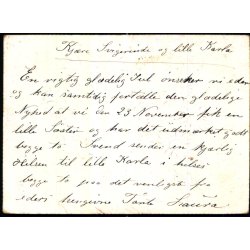 Kjære Svigerinde og lille Karla
En rigtig glædelig Jul ønsker vi eder
og kan samtidig fortælle den glædelige
Nyhed at vi den 23 November fik en
lille Søster og har det udmærket godt
begge to Svend sender en kjærlig
Hilsen til lille Karla i hilses
begge to paa det venligste fra
eders hengivne Tante Laura